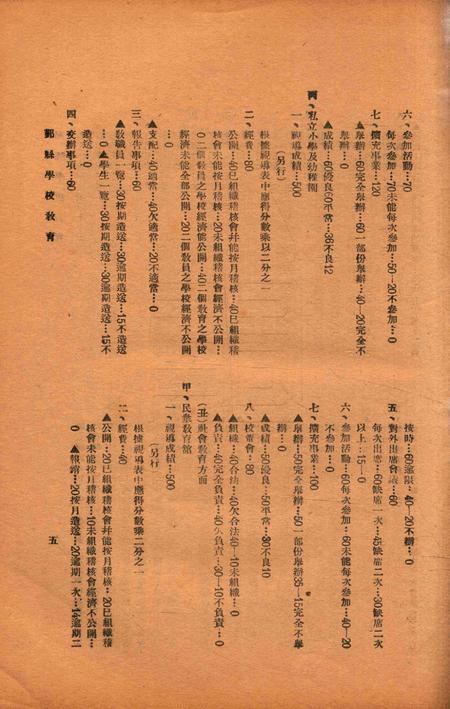 六、參加活動…70
每次參加…70未能每次參加…50—20不參加…0
七、擴充事業…120
▲舉辦…60完全舉辦…60一部份舉辦…40—20完全不
舉辦…0
▲成績…60優良60平常…36不良12
丙、私立小學及幼稚園
一、視導成績…500
（另行）
根據視導表中應得分數乘以二分之一
二、經費…80
公開…40已組織稽核會并能按月稽核…40已組織稽
核會未能按月稽核…20未組織稽核會經濟不公開…
0二個教員之學校經濟能公開…40二個教育之學校
經濟未能全部公開…20二個教員之學校經濟不公開
…0
▲支配…40適當…40欠適當…20不適當…0
三、報告事項…60
▲教職員一覽…30按期造送…30逾期造送…15不造送
…0▲學生一覽…30按期造送…30逾期造送…15不
造送…0
四、交辦事項…60
鄞縣學校教育
按時…60逾限…40—20不辦…0
五、對外出席會議…60
每次出席…60缺席一次…45缺席二次…30缺席二次
以上…15—0
六、參加活動…60每次參加…60未能每次參加…40—20
不參加…0
七、擴充事業…100
▲舉辦…50完全舉辦…50一部份舉辦35—15完全不舉
辦…0
▲成績…50優良…50平常…30不良10
八、校董會…80
▲組織…40合法…40欠合法40—10未組織…0
▲負責…40完全負責…40欠負責…30—10不負責…0
(丑)社會教育方面
甲、民衆教育館
一、視導成績…500
（另行）
根據視導表中應得分數乘二分之一
二、經費…60
▲公開…20已組織稽核會并能按月稽核…20已組織稽
核會未能按月稽核…10未組織稽核會經濟不公開…
0▲報銷…20按月造送…20逾期一次…14逾期二
五